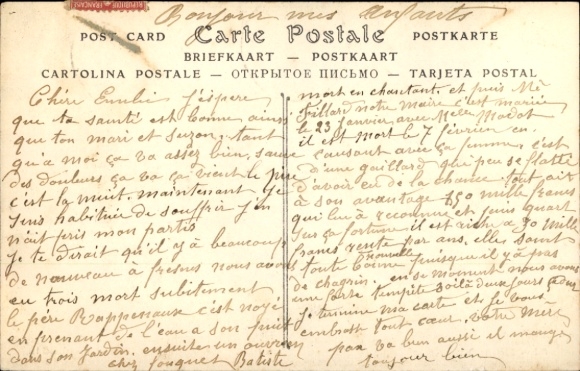 Bonjour mes enfants
POST CARD Carte Postale POSTKARTE
BRIEFKAART — POSTKAART
CARTOLINA POSTALE — ОТКРЫТОЕ ПИСЬМО — TARJETA POSTAL
Chère Emilie j'espère
que ta santé est bonne, ainsi
que ton mari et Suzon, tant
qu'a moi ça va assez bien, sauve
des douleurs ça va ça vient le pire
c'est la nuit, maintenant je
suis habituée de souffrir j'en
n'ait pris mon partis
je te dirait qu'il y à beaucoup
de nouveau à fresnes nous avons
eu trois mort subitement
le père Rappeneaux c'est noyé
en prenant de l'eau a son puit
dans son jardin. ensuite un ouvrier
chez fouquet Batiste
mort en chantant. et puis Mr
Fillard notre Maire c'est mariée
le 23 janvier avec Melle Madot
il est mort le 7 février en
causant avec ça femme, c'est
d'une gaillard qui peu se flatté
d'avoir eu de la chance tout ait
à son avantage 150 mille francs
qui lui à reconnue et leurs quart
sur ça fortune il est riche a 30 Mille
francs rente par ans. elle sont
toute comme nouvelle puisque il y à pas
de chagrin. en se moment nous avons
une forte tempête voilà deux jours
je termine ma carte et je vous
embrasse tout cœur. votre mère
papa va bien aussi il mange
toujour bien